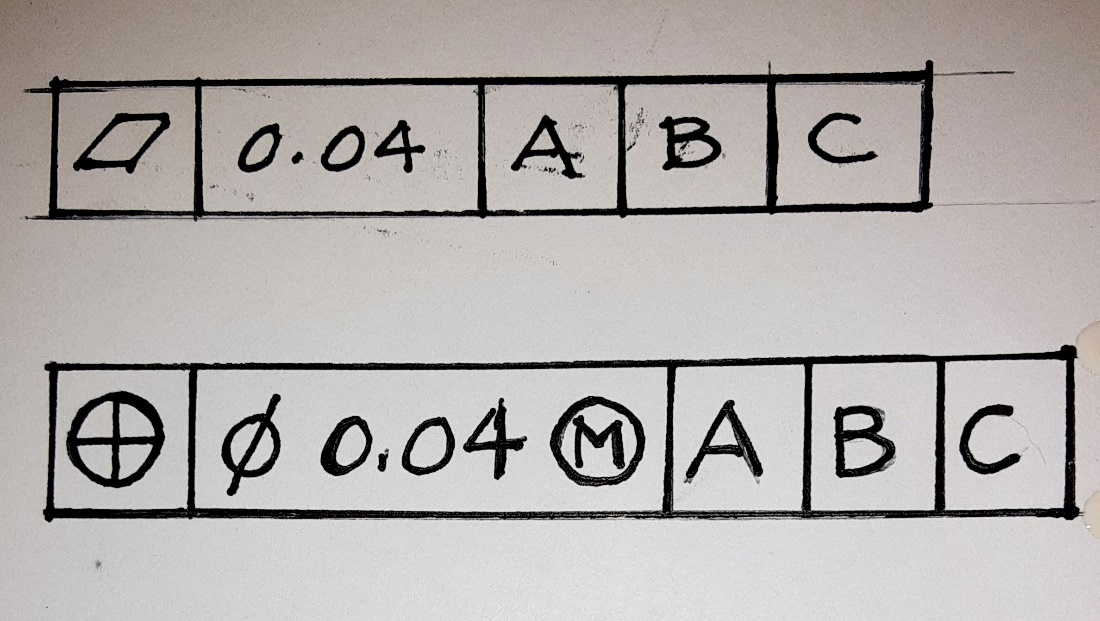 ⏥ 0.04 A B C
⌖ ⌀ 0.04 Ⓜ A B C